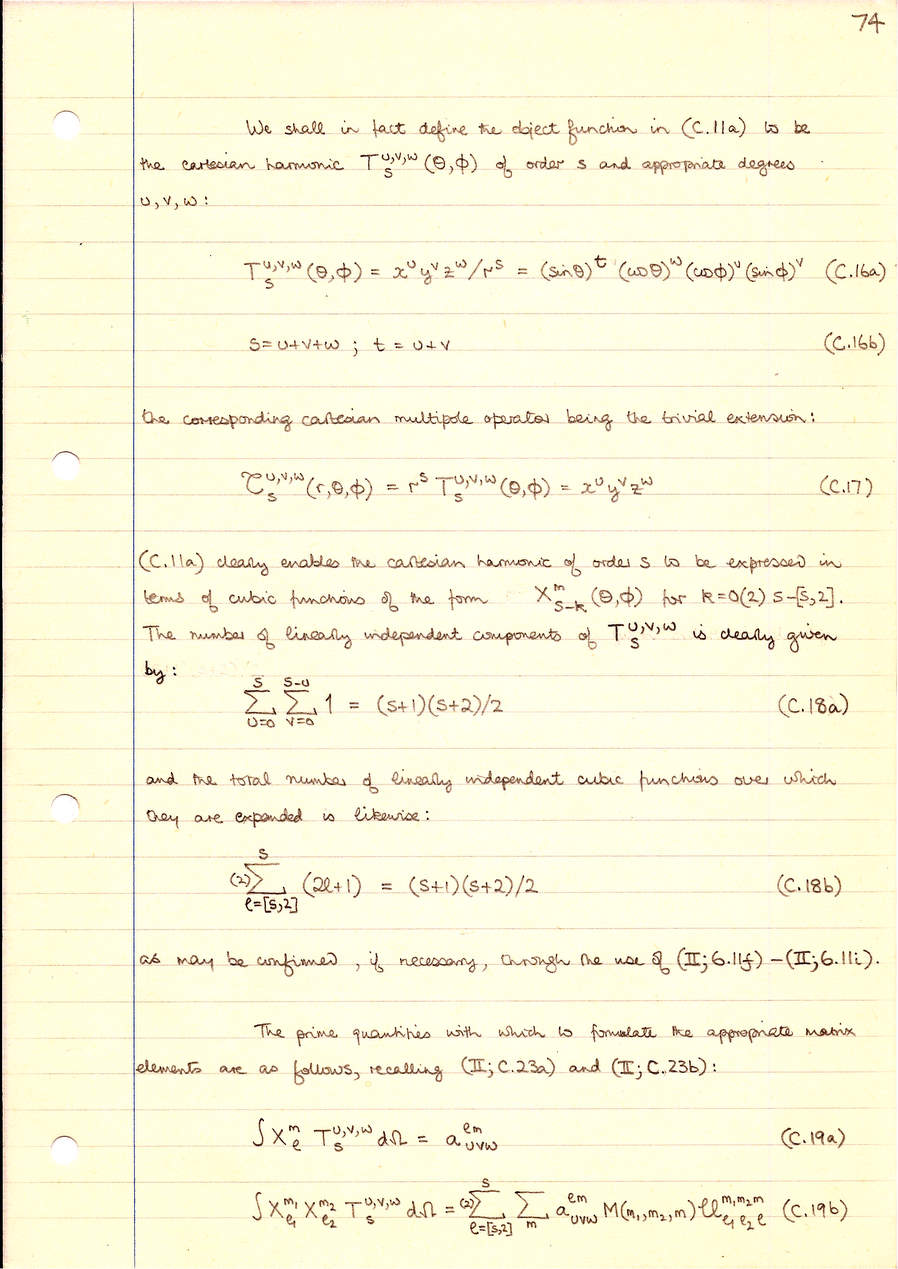 74
We shall in fact define the object function in (C.11a) to be
the cartesian harmonic T_s^{u,v,w} (θ,φ) of order s and appropriate degrees
u, v, w :
T_s^{u,v,w} (θ,φ) = x^u y^v z^w / r^s = (sinθ)^t (cosθ)^w (cosφ)^u (sinφ)^v (C.16a)
s = u+v+w ; t = u+v (C.16b)
the corresponding cartesian multipole operator being the trivial extension :
𝒯_s^{u,v,w} (r,θ,φ) = r^s T_s^{u,v,w} (θ,φ) = x^u y^v z^w (C.17)
(C.11a) clearly enables the cartesian harmonic of order s to be expressed in
terms of cubic functions of the form X_{s-k}^m (θ,φ) for k=0(2) s-[s,2].
The number of linearly independent components of T_s^{u,v,w} is clearly given
by :
∑_{u=0}^{s} ∑_{v=0}^{s-u} 1 = (s+1)(s+2)/2 (C.18a)
and the total number of linearly independent cubic functions over which
they are expanded is likewise :
(2)∑_{ℓ=[s,2]}^{s} (2ℓ+1) = (s+1)(s+2)/2 (C.18b)
as may be confirmed, if necessary, through the use of (II; 6.11f) – (II; 6.11i).
The prime quantities with which to formulate the appropriate matrix
elements are as follows, recalling (II; C.23a) and (II; C.23b) :
∫ X_ℓ^m T_s^{u,v,w} dΩ = a_{uvw}^{ℓm} (C.19a)
∫ X_{ℓ₁}^{m₁} X_{ℓ₂}^{m₂} T_s^{u,v,w} dΩ = (2)∑_{ℓ=[s,2]}^{s} ∑_m a_{uvw}^{ℓm} M(m₁,m₂,m) 𝒰_{ℓ₁ ℓ₂ ℓ}^{m₁m₂m} (C.19b)